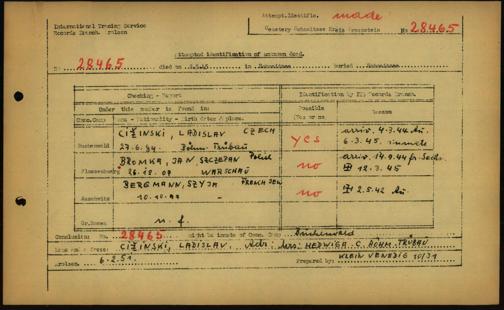 International Tracing Service
Records Branch Arolsen
Attempt.Identific. made
Cemetery Schwittersdorf Kreis
No 28465
Attempted identification of unknown dead.
No 28465 died on in Schwittersdorf Buried Schwittersdorf
Checking - Report
Identification by ITS Records Branch.
Under this number is found in:
Possible
Reason
Conc.Camp
Name - Nationality - Birth Date & place.
Yes or no
CIŽINSKI, LADISLAV CZECH
arriv. 4.3.44 Au.
Buchenwald
27.6.94. Böhm. Trübau
yes
6.3.45. inmate
BROMKA, JAN SZCZEPAN Polish
arriv. 14.9.44 fr. Sachs.
Flossenburg
26.12.07 WARSCHAU
no
12.3.45
BERGMANN, SZYJA FRENCH JEW
no
2.5.42 Au.
Auschwitz
10.10.99 -
Gr.Rosen
n. f.
Conclusion: No. 28465 might be inmate of Conc. Camp Buchenwald
CIŽINSKI, LADISLAV. HEDWIGA C. BÖHM. TRÜBAU
Arolsen, 6.2.51.
Prepared by: KLEIN VENEDIG 10/31